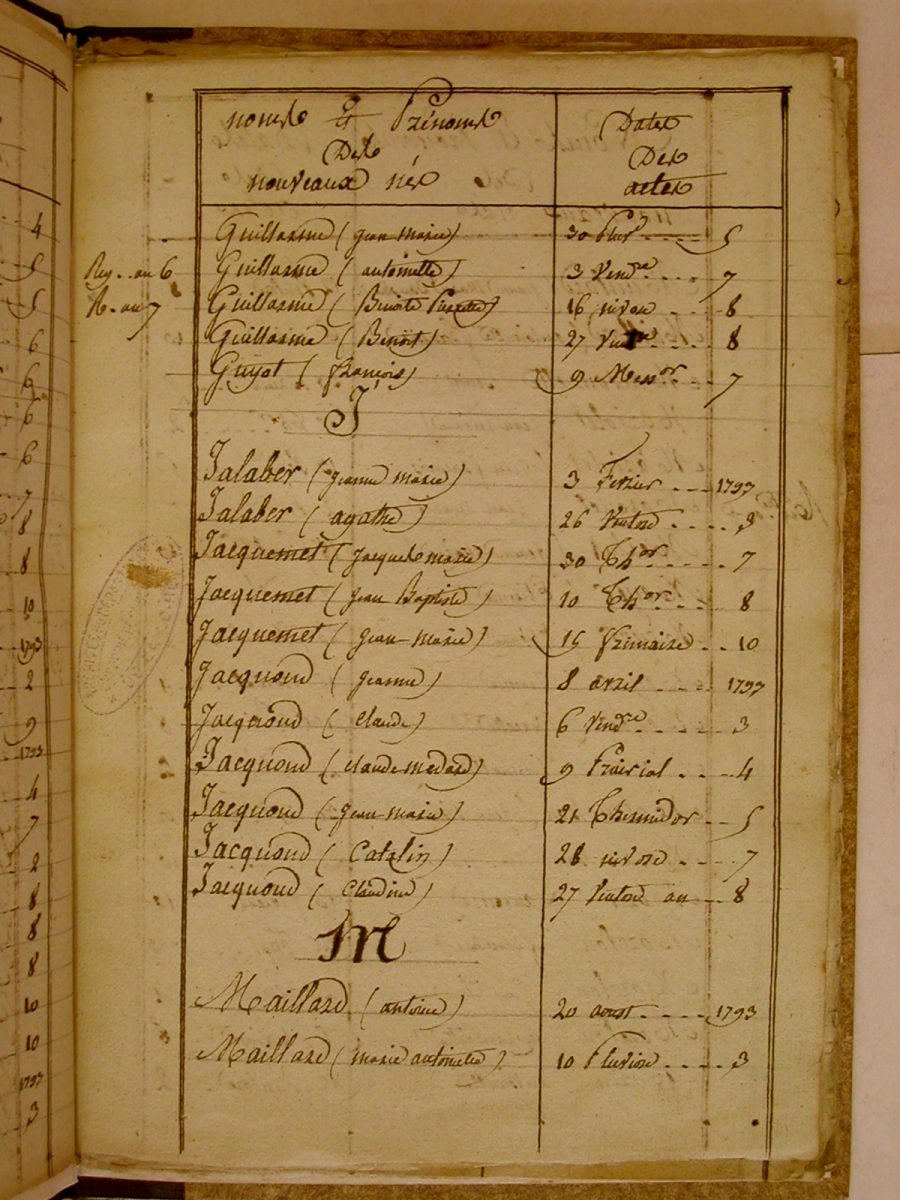 noms et Prénoms
Des
nouveaux nés
Dates
Des
actes
Guillarme (jean marie) 30 Pluv.e .... 5
Rey.. au 6 Guillarme (antoinette) 3 Vend.re .... 7
R. au 7 Guillarme (Benoite Pierrette) 16 nivose .... 8
Guillarme (Benoit) 27 .... 8
Guyot (françois) 9 Mess.or .... 7
J
Jalaber (jeanne marie) 3 Fevrier .... 1793
Jalaber (agathe) 26 Ventose .... 3
Jacquemet (jacques marie) 30 Th.or ..... 7
Jacquemet (jean Baptiste) 10 Th.or .... 8
Jacquemet (jean marie) 15 frimaire .. 10
Jacquond (jeanne) 8 avril .... 1793
Jacquond (claude) 6 Vend.re .... 3
Jacquond (claude medard) 9 Prairial .... 4
Jacquond (jean marie) 21 Thermidor .. 5
Jacquond (Catelin) 28 nivose .... 7
Jacquond (Claudine) 27 Ventose an .. 8
M
Maillard (antoine) 20 aoust ..... 1793
Maillard (marie antoinette) 10 Pluviose .... 3
4
5
5
6
6
6
6
7
8
8
10
1793
2
9
1793
4
7
2
8
8
8
10
10
1793
3